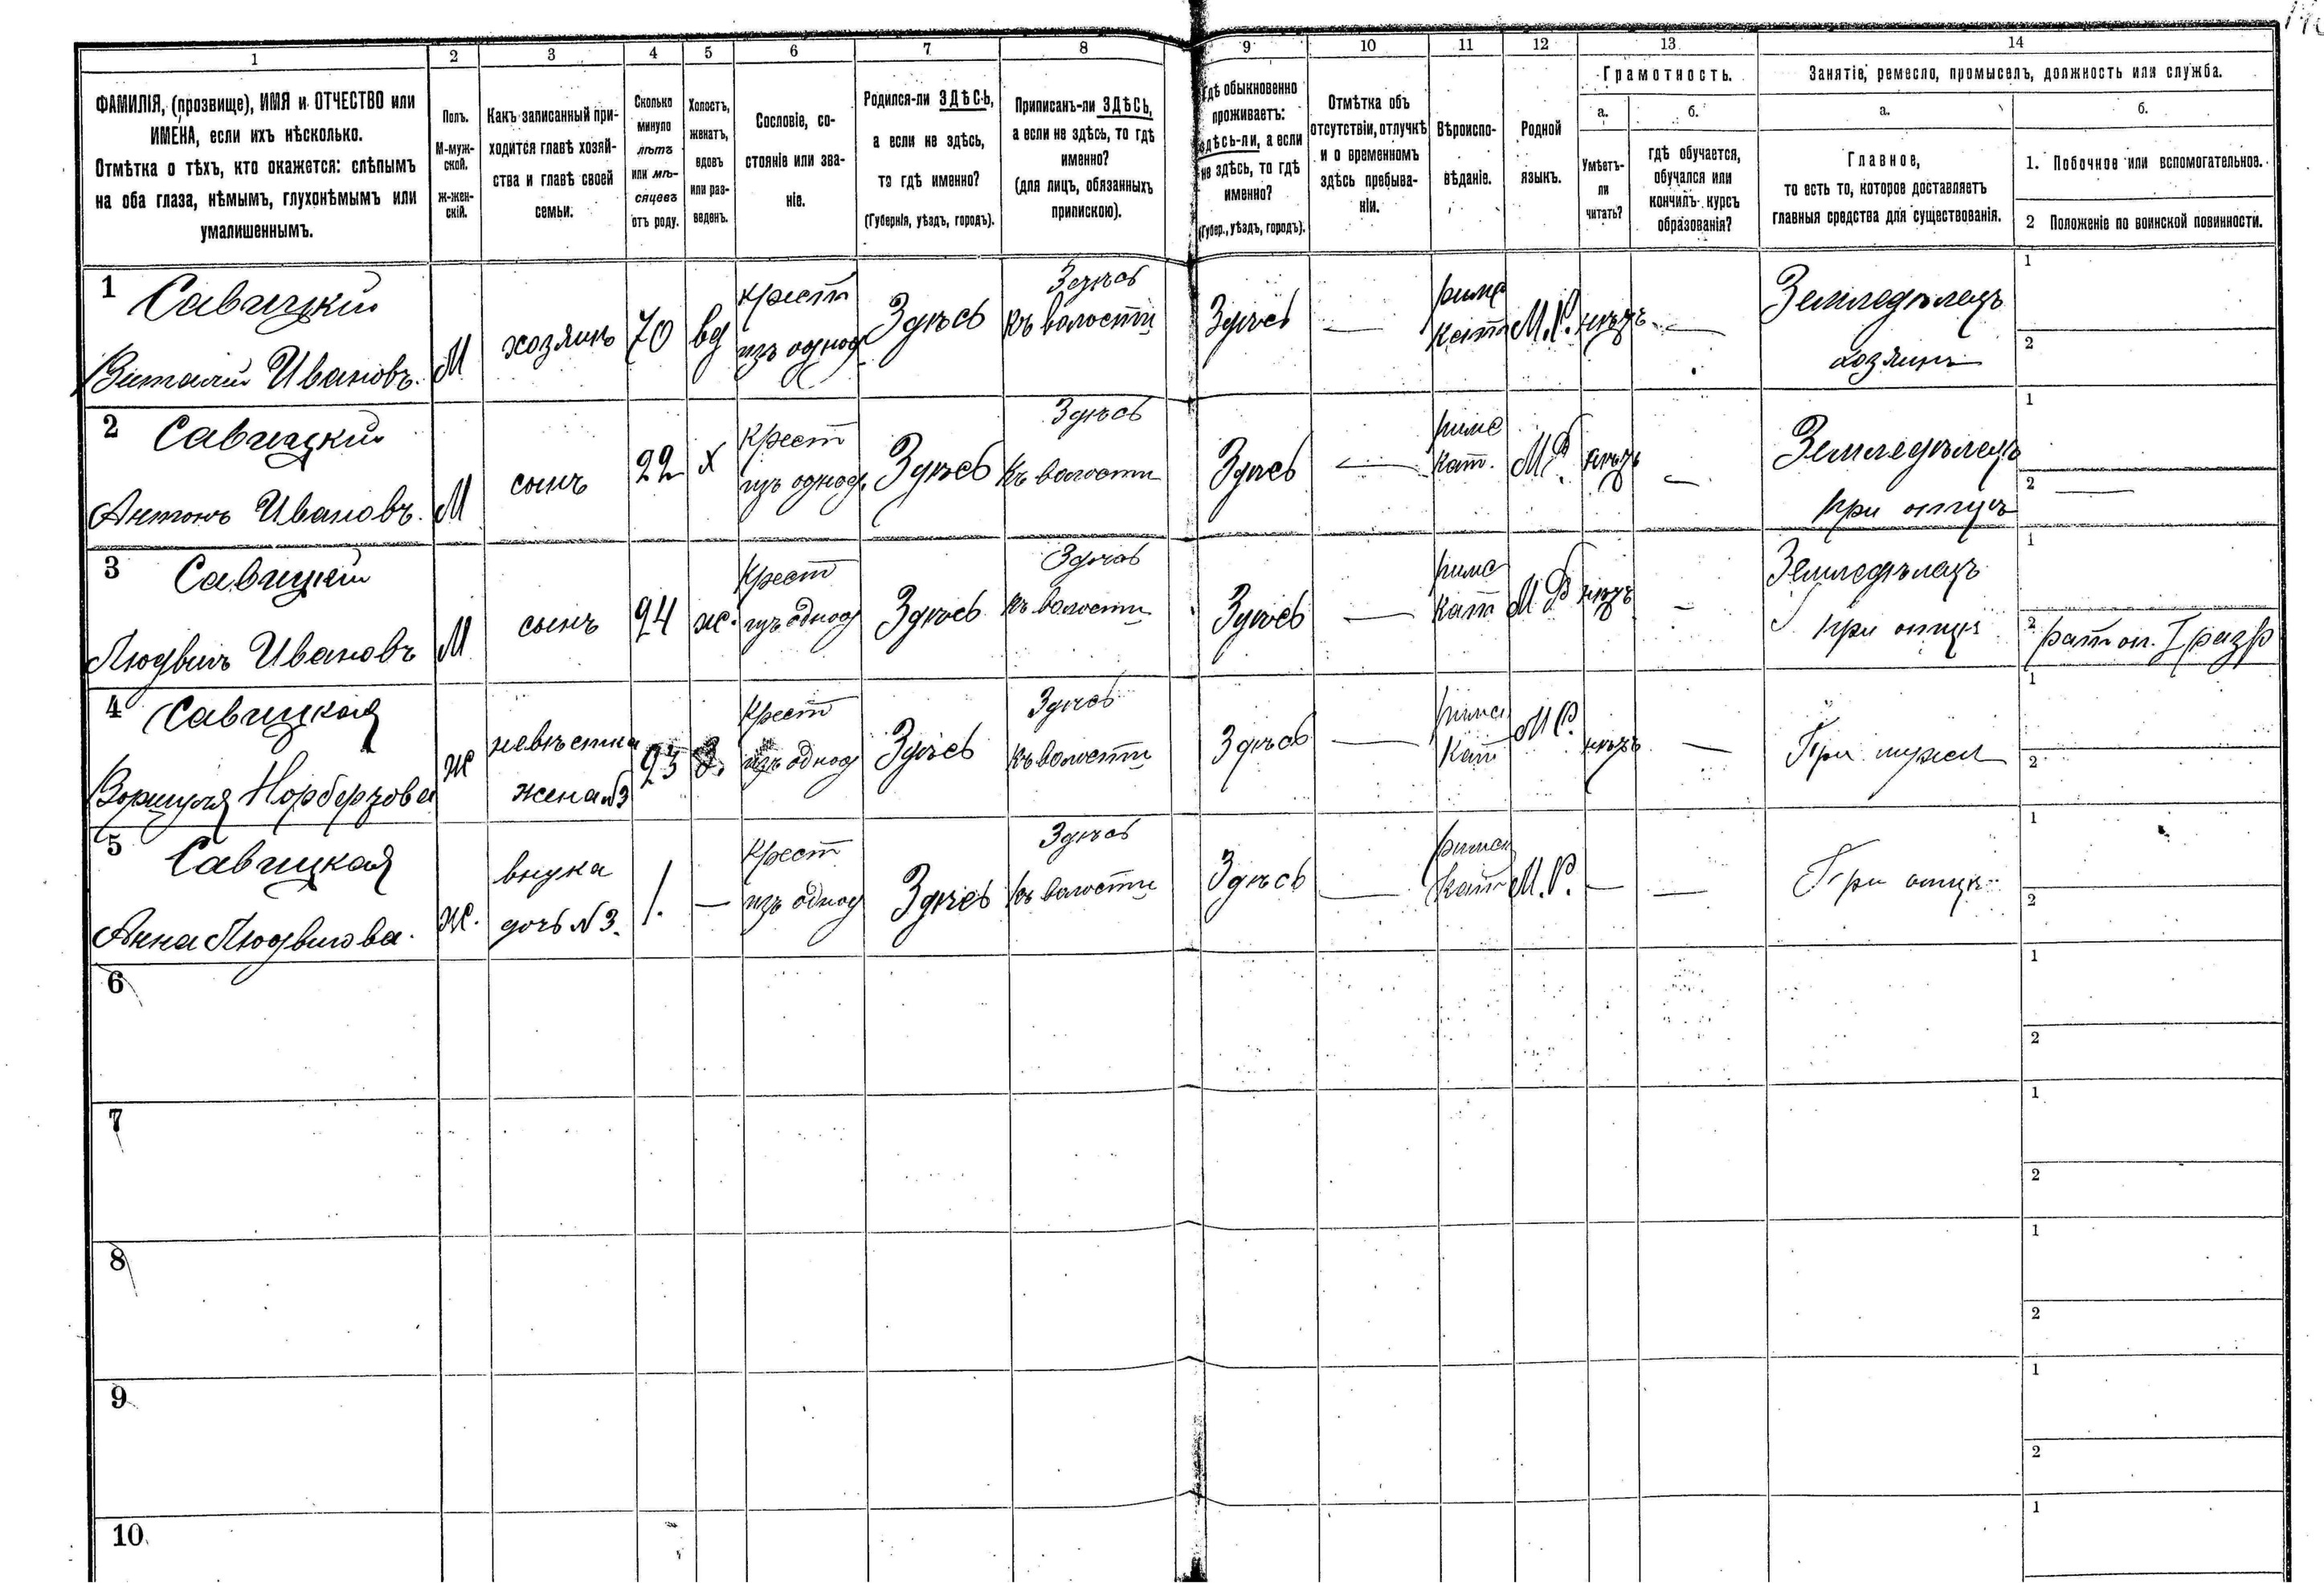 1 2 3 4 5 6 7 8 9 10 11 12 13 14
ФАМИЛІЯ, (прозвище), ИМЯ и ОТЧЕСТВО или
ИМЕНА, если ихъ нѣсколько.
Отмѣтка о тѣхъ, кто окажется: слѣпымъ
на оба глаза, нѣмымъ, глухонѣмымъ или
умалишеннымъ.
Полъ.
М-муж-
ской.
ж-жен-
скій.
Какъ записанный при-
ходится главѣ хозяй-
ства и главѣ своей
семьи.
Сколько
минуло
лѣтъ
или мѣ-
сяцевъ
отъ роду.
Холостъ,
женатъ,
вдовъ
или раз-
веденъ.
Сословіе, со-
стояніе или зва-
ніе.
Родился-ли ЗДѢСЬ,
а если не здѣсь,
то гдѣ именно?
(Губернія, уѣздъ, городъ).
Приписанъ-ли ЗДѢСЬ,
а если не здѣсь, то гдѣ
именно?
(для лицъ, обязанныхъ
припискою).
Гдѣ обыкновенно
проживаетъ:
здѣсь-ли, а если
не здѣсь, то гдѣ
именно?
(Губер., уѣздъ, городъ).
Отмѣтка объ
отсутствіи, отлучкѣ
и о временномъ
здѣсь пребыва-
ніи.
Вѣроиспо-
вѣданіе.
Родной
языкъ.
Грамотность.
а.
Умѣетъ-
ли
читать?
б.
гдѣ обучается,
обучался или
кончилъ курсъ
образованія?
Занятіе, ремесло, промыселъ, должность или служба.
а.
Главное,
то есть то, которое доставляетъ
главныя средства для существованія.
б.
1. Побочное или вспомогательное.
2 Положеніе по воинской повинности.
1 Савицкій
Виталій Ивановъ.
М
хозяинъ
70
вд
крест
изъ однод
Здѣсь
Здѣсь
къ волости
Здѣсь
—
римс
кат
М.Р.
нѣтъ
—
Земледѣлецъ
хозяинъ
1
2
2 Савицкій
Антонъ Ивановъ.
М
сынъ
22
х
Крест
изъ однод.
Здѣсь
Здѣсь
къ волости
Здѣсь
—
римс
кат.
М.Р.
нѣтъ
—
Земледѣлецъ
при отцѣ
1
2 —
3 Савицкій
Людвигъ Ивановъ
М
сынъ
24
ж.
Крест
изъ однод
Здѣсь
Здѣсь
къ волости
Здѣсь
—
римс
кат
М Р
нѣтъ
—
Земледѣлецъ
при отцѣ
1
2 рат оп. I разр
4 Савицкая
Норбертова
ж
невѣстка
жена №3
23
З.
Крест
изъ однод
Здѣсь
Здѣсь
къ волости
Здѣсь
—
римс
Кат
М Р.
нѣтъ
—
При мужѣ
1
2
5 Савицкая
Анна Людвигова.
ж.
внука
дочь №3.
1.
—
Крест
изъ однод
Здѣсь
Здѣсь
къ волости
Здѣсь
—
римск
кат
М.Р.
—
—
При отцѣ
1
2
6
1
2
7
1
2
8
1
2
9
1
2
10
1